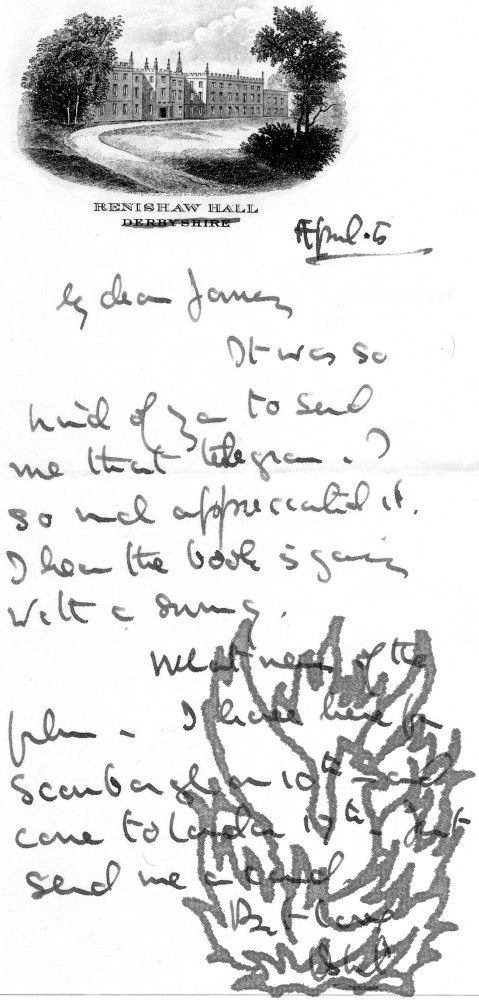 RENISHAW HALL
DERBYSHIRE
April. 5
My dear James
It was so
kind of you to send
me that telegram. I
so much appreciated it.
I hear the book is going
with a swing.
What news of the
I leave here for
Scarborough on 10th and
come to London 17th. Just
send me a card.